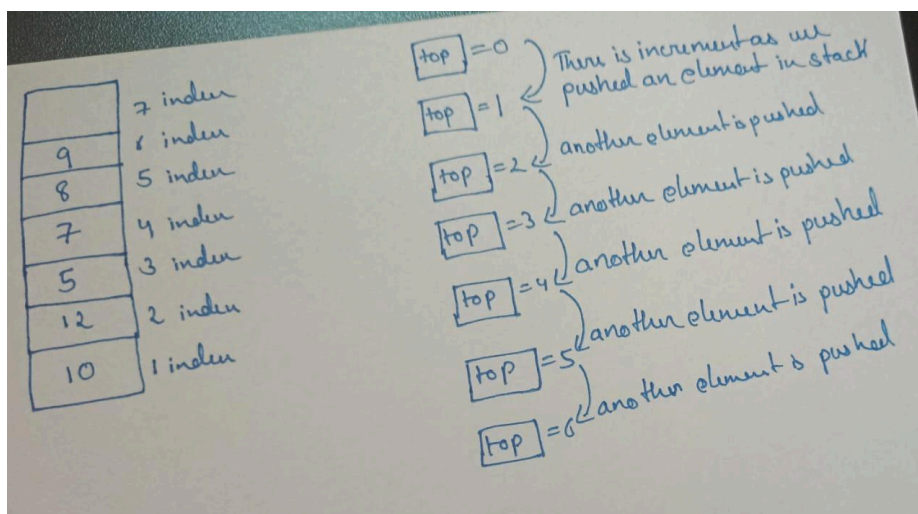 7 index
9 6 index
8 5 index
7 4 index
5 3 index
12 2 index
10 1 index
top =0
There is increment as we
pushed an element in stack
top =1
another element is pushed
top =2
another element is pushed
top =3
another element is pushed
top =4
another element is pushed
top =5
another element is pushed
top =6